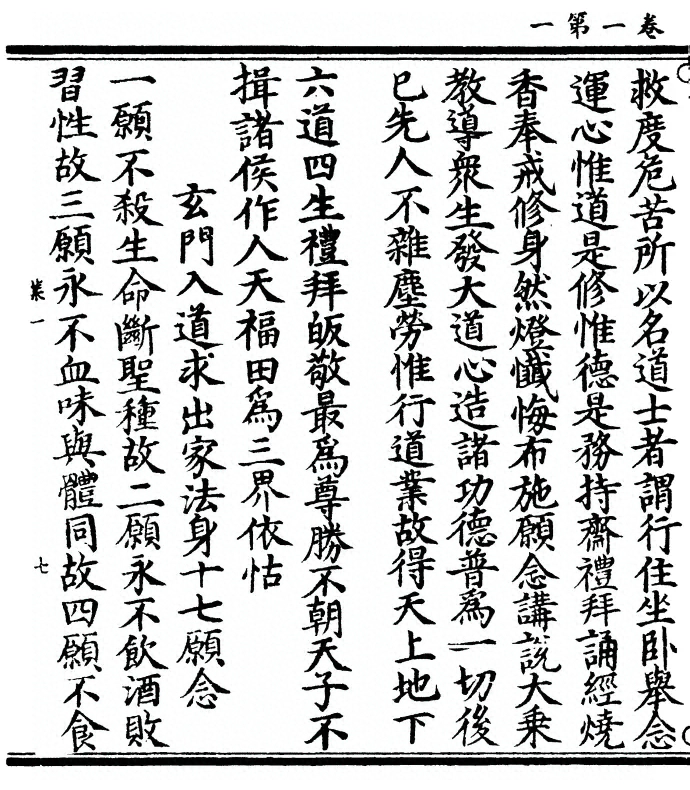 卷一第一
救度危苦所以名道士者謂行住坐卧舉念
運心惟道是修惟德是務持齋禮拜誦經燒
香奉戒修身然燈懺悔布施願念講説大乗
教導衆生發大道心造諸功德普爲一切後
巳先人不雜塵勞惟行道業故得天上地下
六道四生禮拜皈敬最爲尊勝不朝天子不
揖諸侯作人天福田爲三界依怙
玄門入道求出家法身十七願念
一願不殺生命斷聖種故二願永不飲酒敗
習性故三願永不血味與體同故四願不食
業一
七